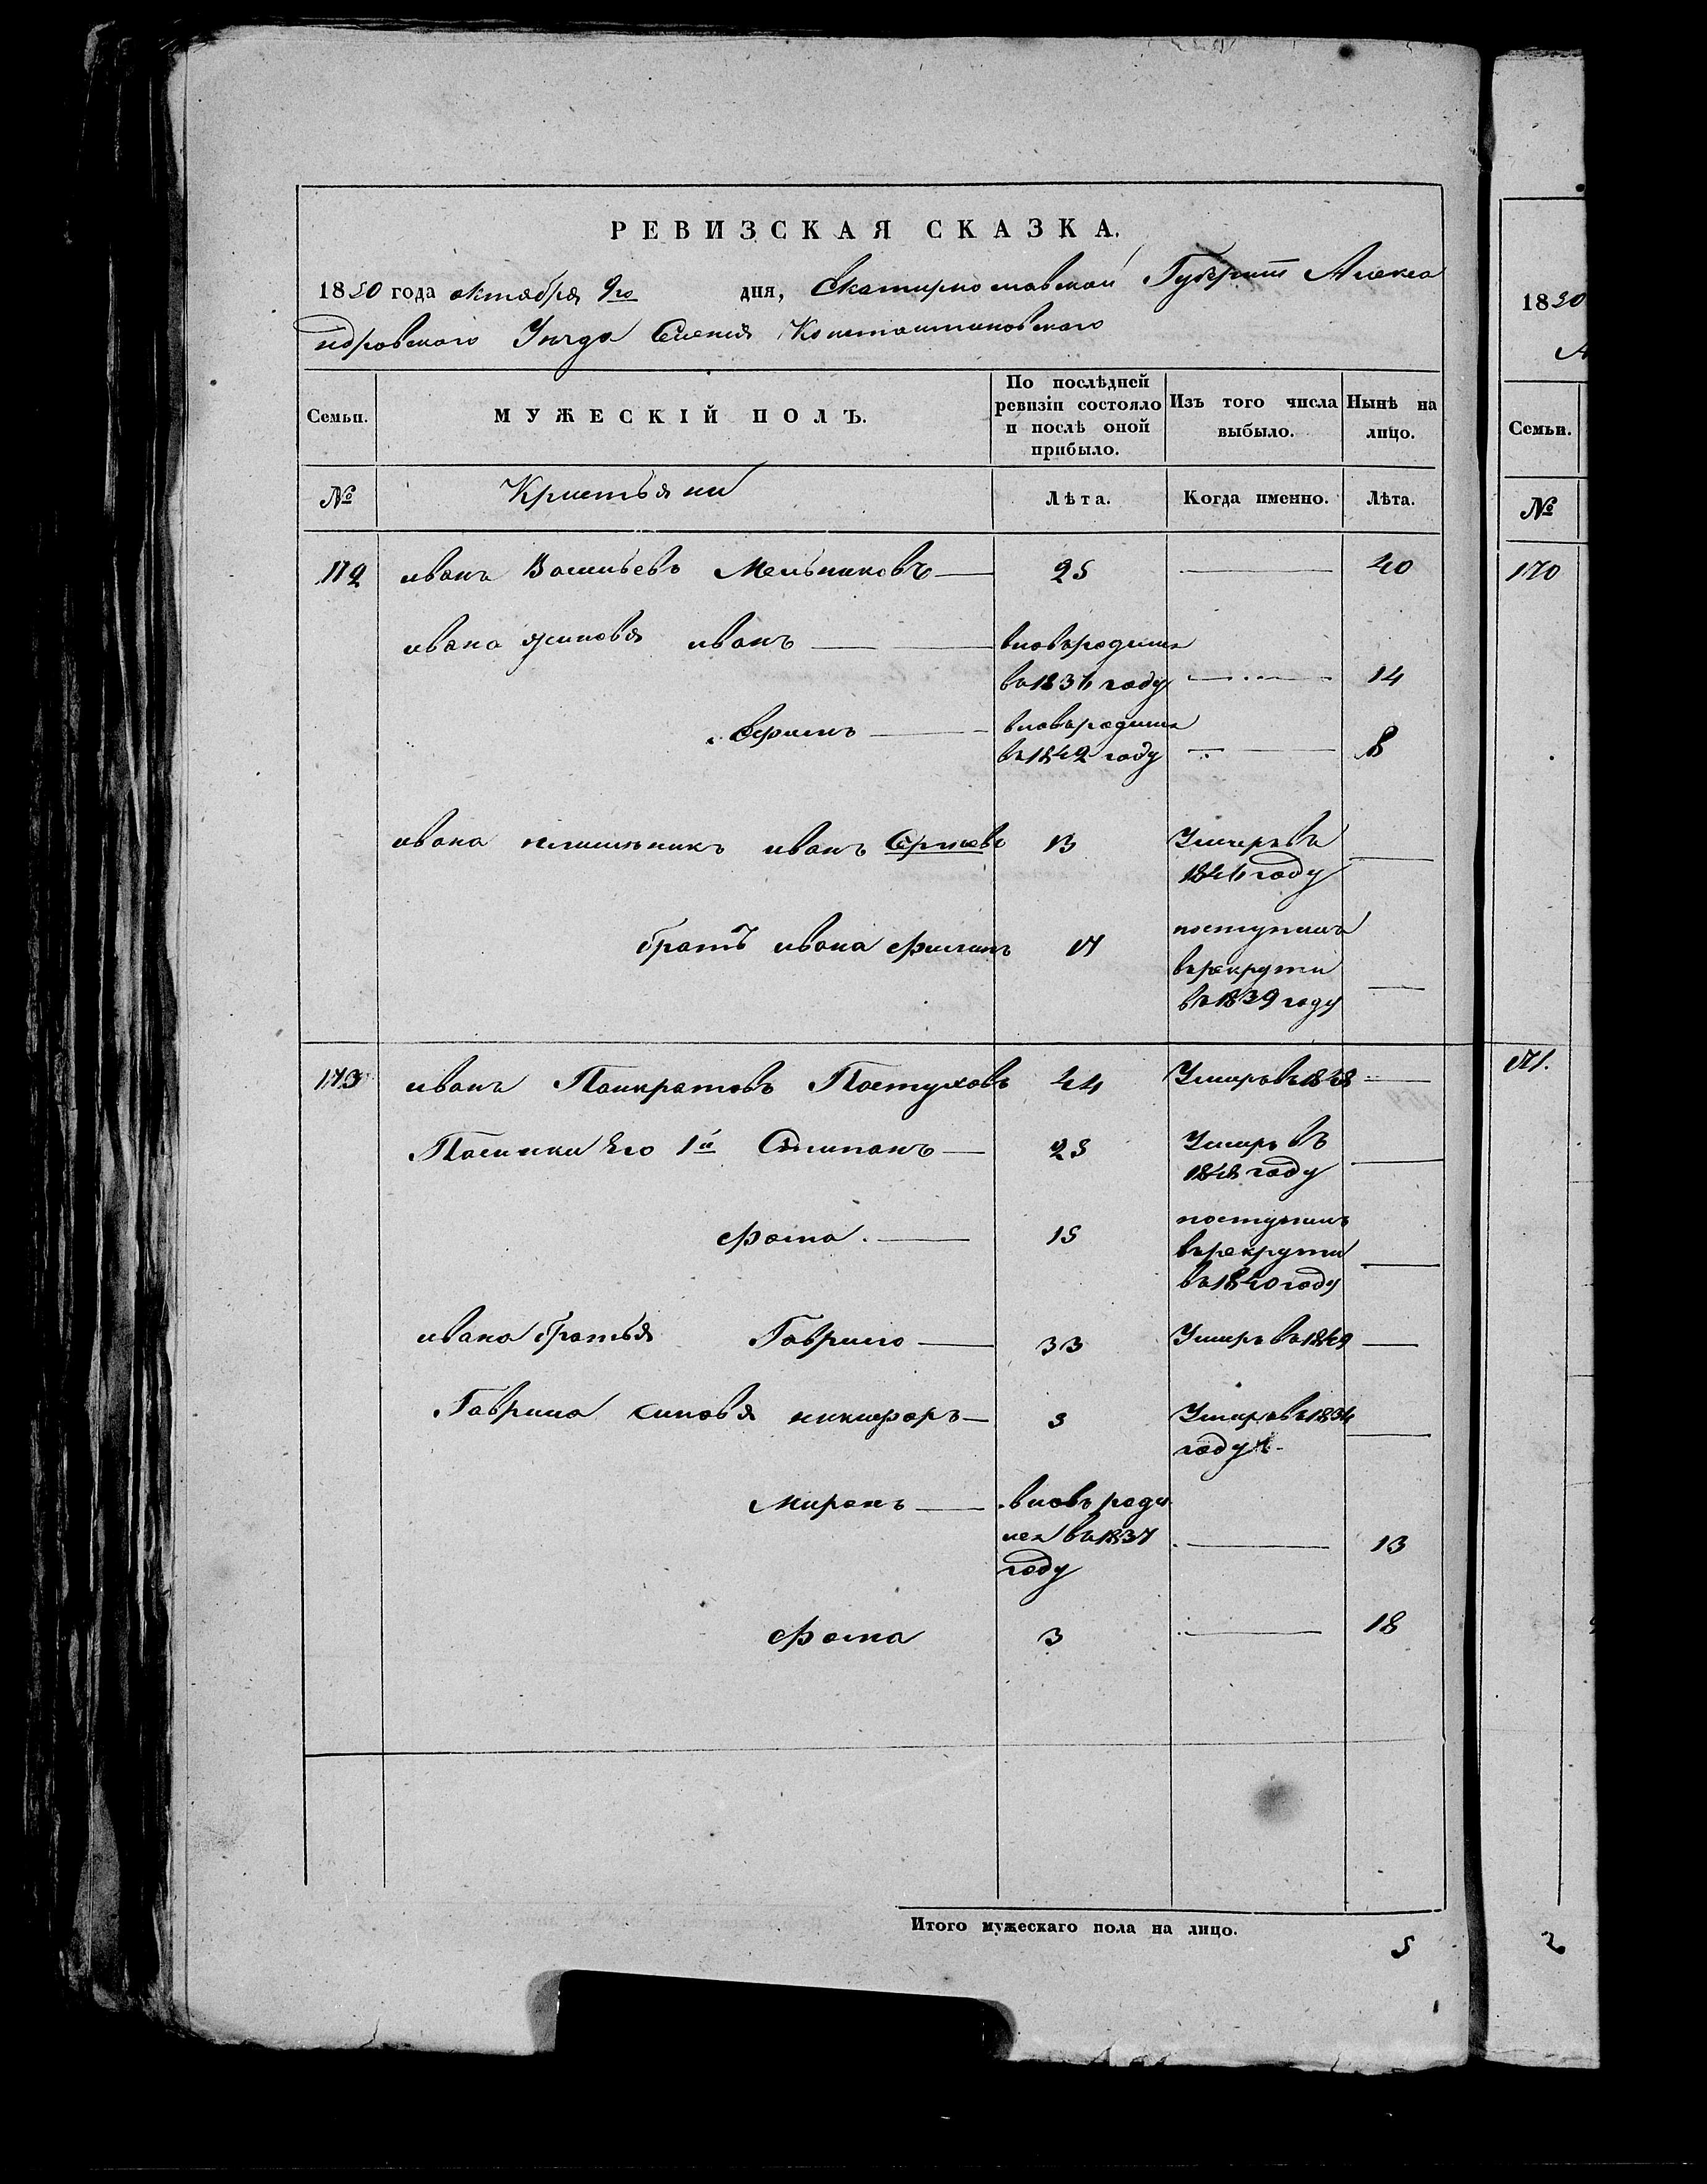 РЕВИЗСКАЯ СКАЗКА.
1850 года октября 9го дня, Екатеринославской Губернии Алекса
ндровского Уезда Селения Константиновского
Семьи.
МУЖЕСКІЙ ПОЛЪ.
По послѣдней
ревизіи состояло
и послѣ оной
прибыло.
Изъ того числа
выбыло.
Нынѣ на
лицо.
№ Кристьяни Лѣта. Когда именно. Лѣта.
172 иванъ Васильевъ Мельниковъ 25 40
ивана синовья иванъ вновьродился
въ1836 году 14
Ефимъ вновьродился
въ1842 году 8
ивана племянникъ иванъ Сергѣевъ 13 Умеръвъ
1846году
братъ ивана филипъ 17 поступилъ
върекрути
въ1839 году
173 иванъ Панкратовъ Пастуховъ 44 Умеръвъ1848
Пасинки Его 1й Степанъ 25 Умеръ въ
1848 году
фома 15 поступилъ
върекрути
въ1840году
ивана братья Гаврило 33 Умеръ въ1849
Гаврила синовья никифоръ 3 Умеръвъ1836
году
Миронъ вновь роди
лся въ1837
году 13
фома 3 18
Итого мужескаго пола на лицо.
5
1850
Семьи.
№
170
171.
2